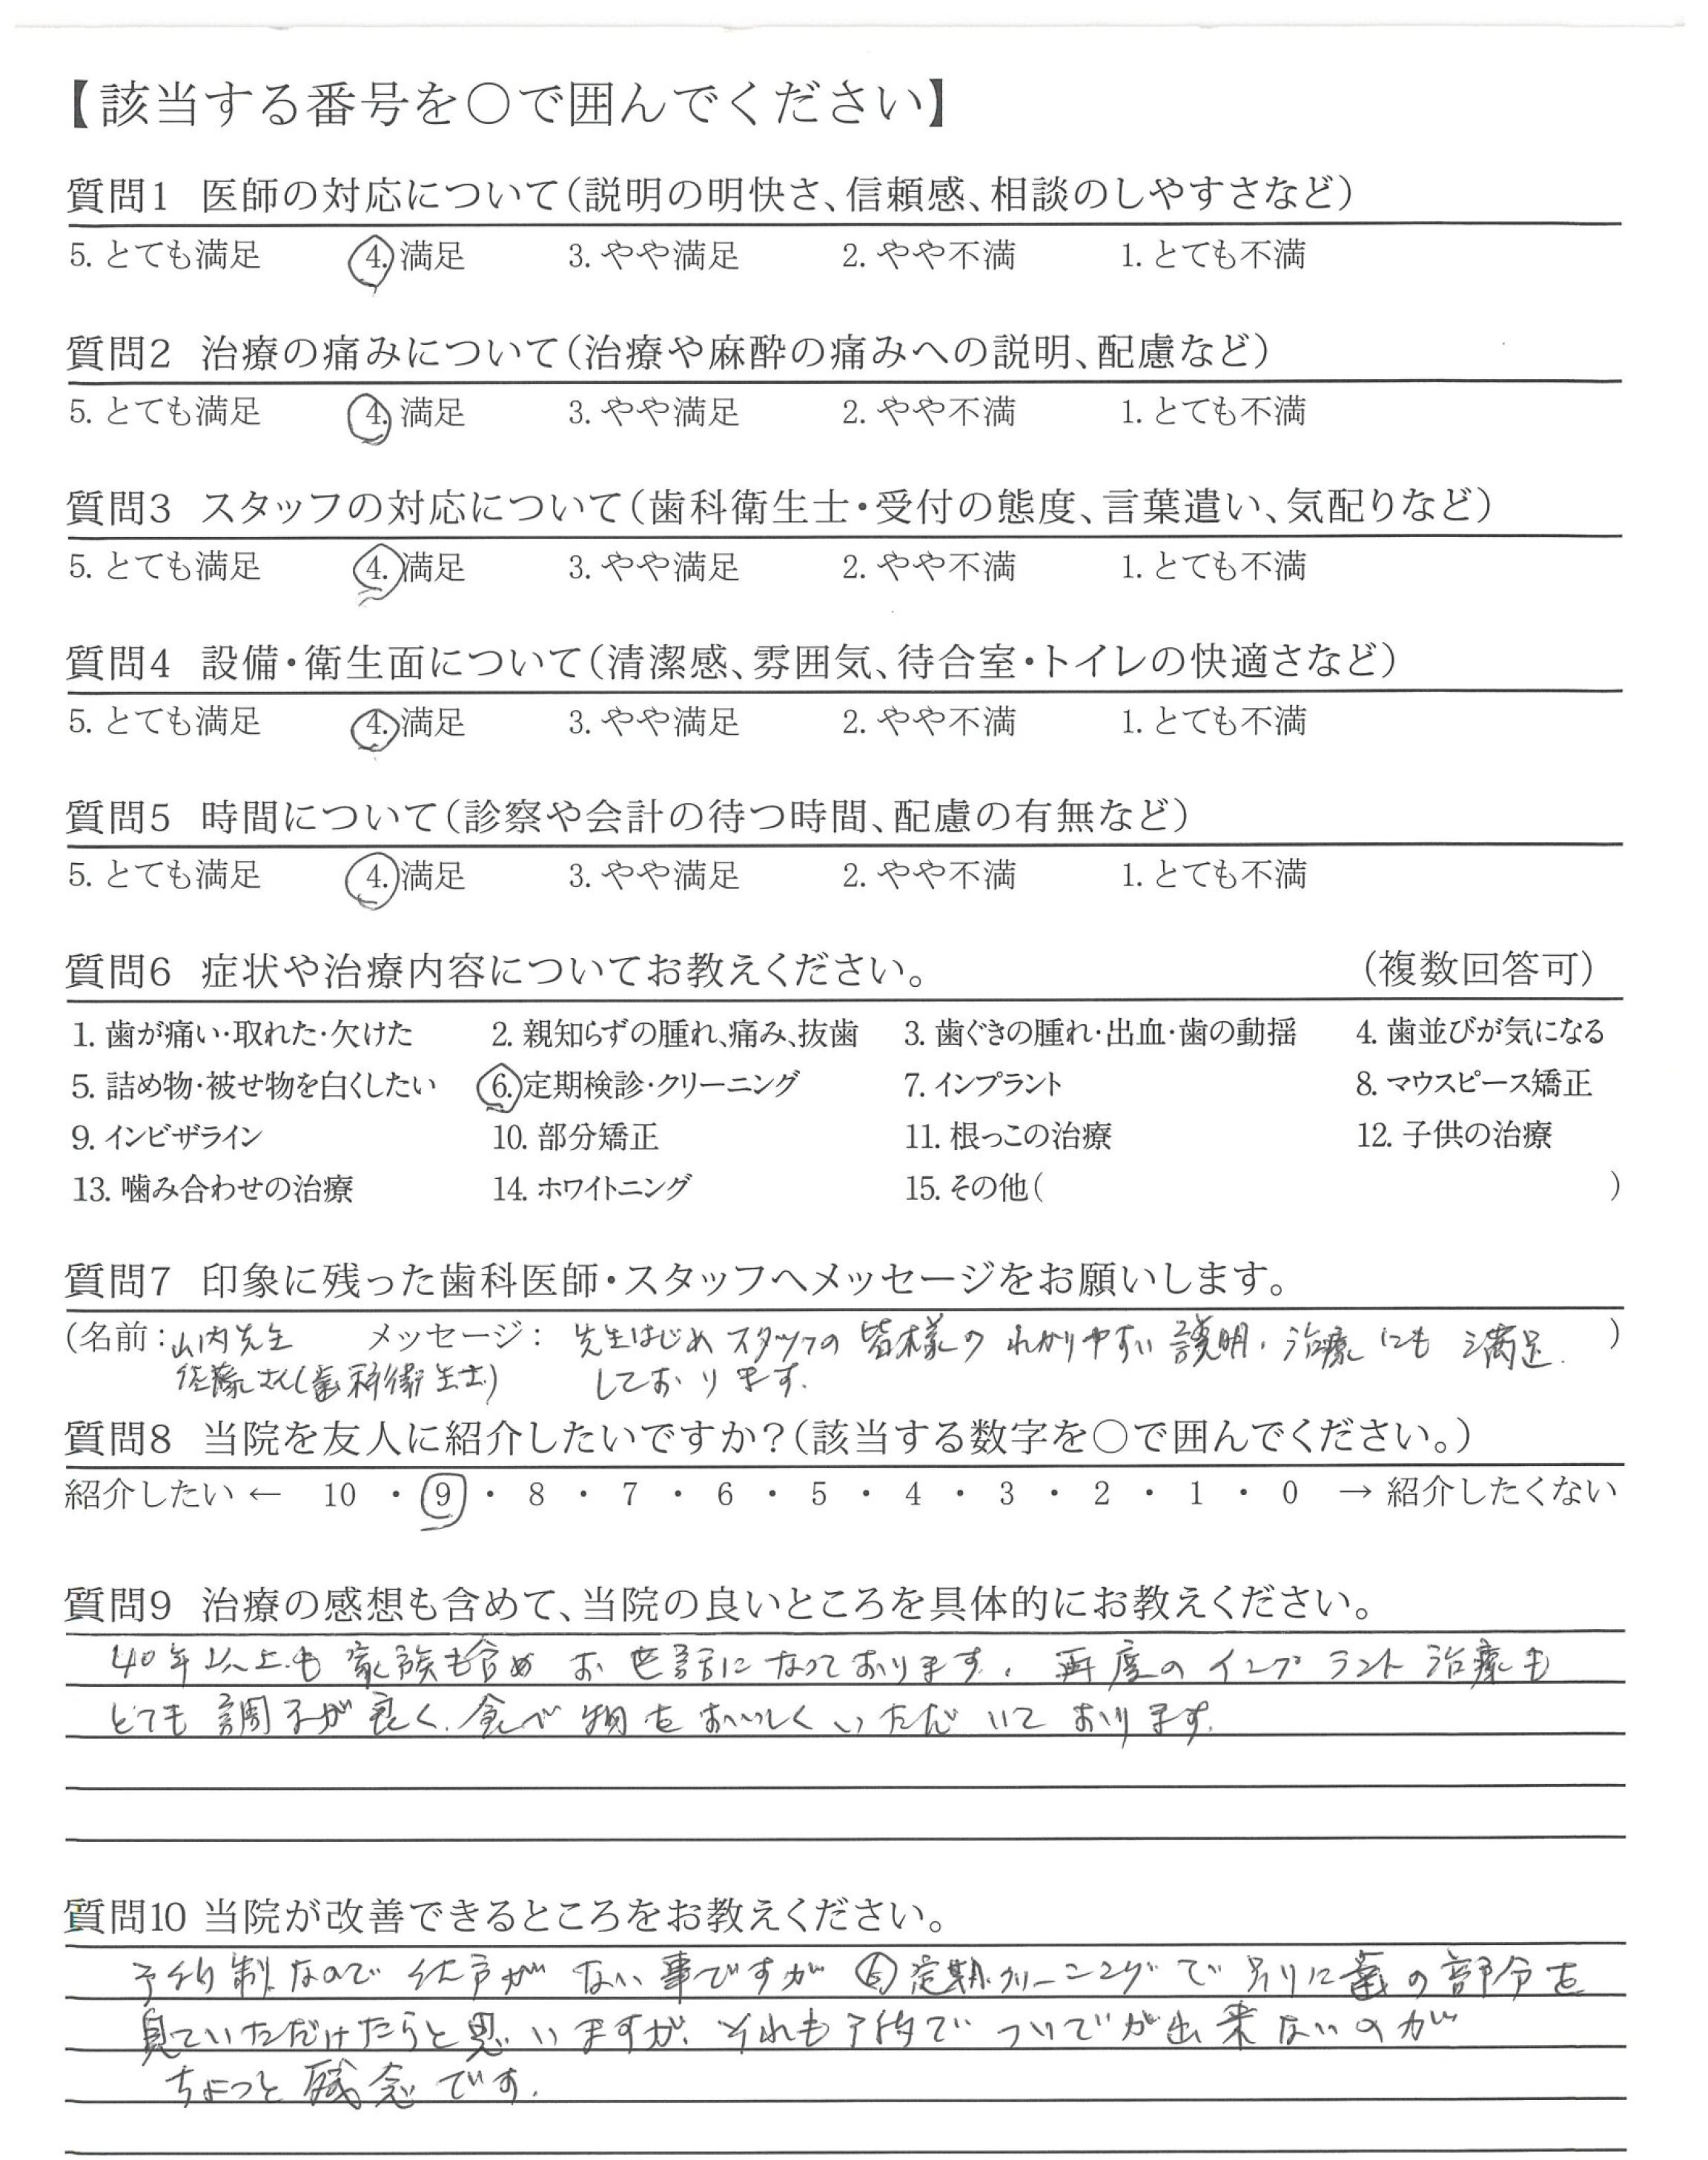 【該当する番号を○で囲んでください】
質問1 医師の対応について（説明の明快さ、信頼感、相談のしやすさなど）
5. とても満足 4. 満足 3. やや満足 2. やや不満 1. とても不満
質問2 治療の痛みについて（治療や麻酔の痛みへの説明、配慮など）
5. とても満足 4. 満足 3. やや満足 2. やや不満 1. とても不満
質問3 スタッフの対応について（歯科衛生士・受付の態度、言葉遣い、気配りなど）
5. とても満足 4. 満足 3. やや満足 2. やや不満 1. とても不満
質問4 設備・衛生面について（清潔感、雰囲気、待合室・トイレの快適さなど）
5. とても満足 4. 満足 3. やや満足 2. やや不満 1. とても不満
質問5 時間について（診察や会計の待つ時間、配慮の有無など）
5. とても満足 4. 満足 3. やや満足 2. やや不満 1. とても不満
質問6 症状や治療内容についてお教えください。 （複数回答可）
1. 歯が痛い・取れた・欠けた 2. 親知らずの腫れ、痛み、抜歯 3. 歯ぐきの腫れ・出血・歯の動揺 4. 歯並びが気になる
5. 詰め物・被せ物を白くしたい 6. 定期検診・クリーニング 7. インプラント 8. マウスピース矯正
9. インビザライン 10. 部分矯正 11. 根っこの治療 12. 子供の治療
13. 噛み合わせの治療 14. ホワイトニング 15. その他（ ）
質問7 印象に残った歯科医師・スタッフへメッセージをお願いします。
（名前：山内先生 メッセージ： 先生はじめスタッフの皆様のわかりやすい説明、治療にも満足 ）
佐藤さん(歯科衛生士) しております。
質問8 当院を友人に紹介したいですか？（該当する数字を○で囲んでください。）
紹介したい ← 10 ・ 9 ・ 8 ・ 7 ・ 6 ・ 5 ・ 4 ・ 3 ・ 2 ・ 1 ・ 0 → 紹介したくない
質問9 治療の感想も含めて、当院の良いところを具体的にお教えください。
40年以上も家族も含めお世話になっております。再度のインプラント治療も
とても調子が良く、食べ物をおいしくいただいております。
質問10 当院が改善できるところをお教えください。
予約制なので仕方がない事ですが 定期クリーニングで別に歯の部分を
見ていただけたらと思いますが、それも予約でついでが出来ないのが
ちょっと残念です。